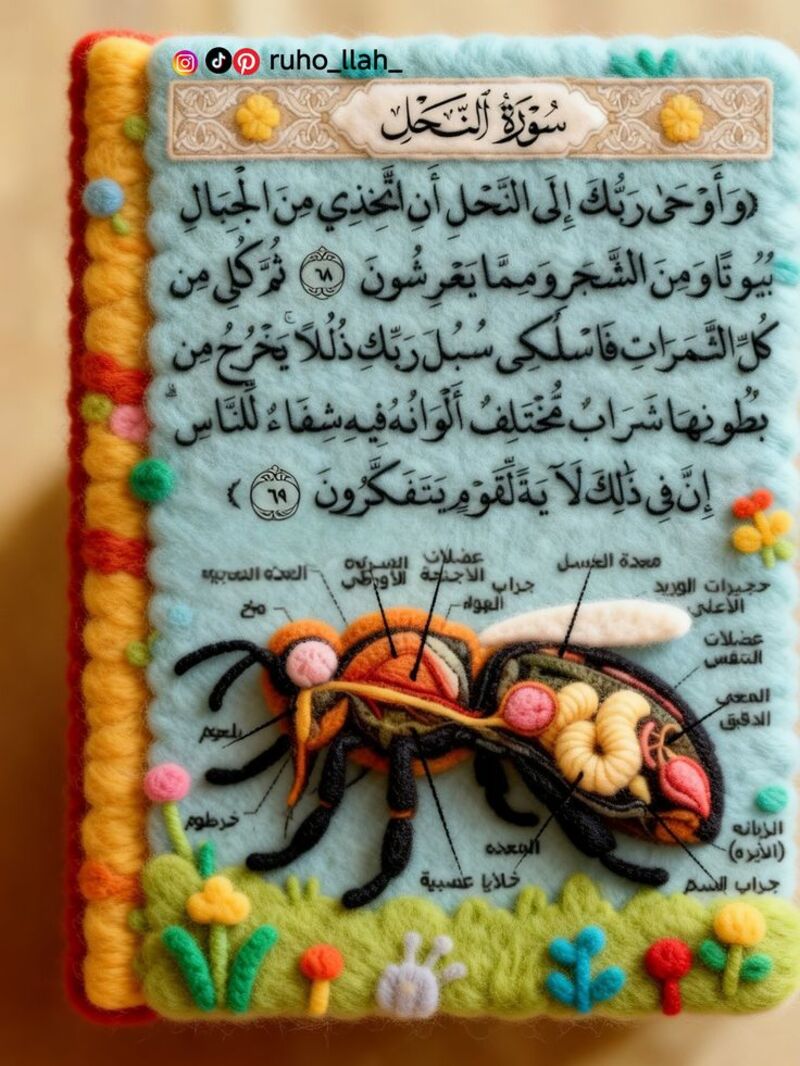 ruho_llah_
سُورَةُ ٱلنَّحْلِ
﴿وَأَوْحَىٰ رَبُّكَ إِلَى النَّحْلِ أَنِ اتَّخِذِي مِنَ الْجِبَالِ
بُيُوتًا وَمِنَ الشَّجَرِ وَمِمَّا يَعْرِشُونَ ٦٨ ثُمَّ كُلِي مِن
كُلِّ الثَّمَرَاتِ فَاسْلُكِي سُبُلَ رَبِّكِ ذُلُلًا ۚ يَخْرُجُ مِن
بُطُونِهَا شَرَابٌ مُّخْتَلِفٌ أَلْوَانُهُ فِيهِ شِفَاءٌ لِّلنَّاسِ ۗ
إِنَّ فِي ذَٰلِكَ لَآيَةً لِّقَوْمٍ يَتَفَكَّرُونَ ٦٩ ﴾
عضلات
الأجنحة
معدة العسل
جراب
الهواء
حجيرات الوريد
الأعلى
مخ
عضلات
التنفس
المعي
الدقيق
بلعوم
خرطوم
المعدة
خلايا عصبية
(الأبره)
جراب السم